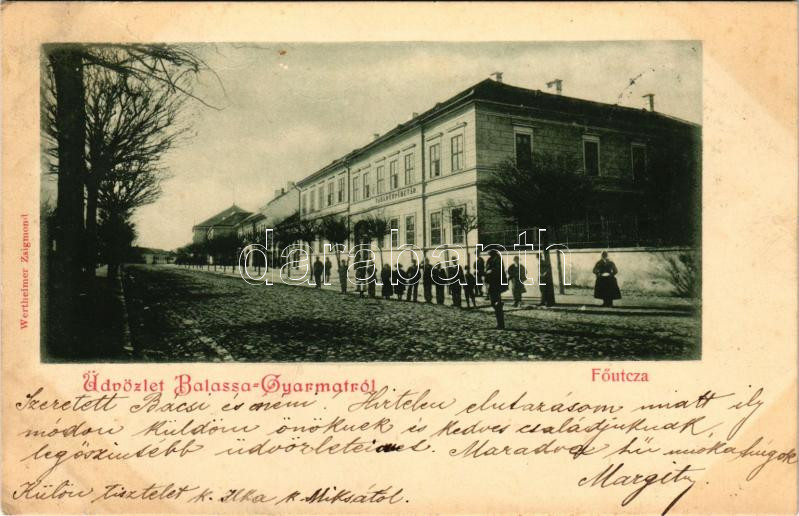 TAKARÉKPÉNZTÁR
darabanth
Wertheimer Zsigmond
Üdvözlet Balassa-Gyarmatról
Főutcza
Szeretett Bácsi és néni! Hirtelen elutazásom miatt ily
módon küldöm önöknek is kedves családjuknak,
legőszintébb üdvözleteimet. Maradva hű unokahúgok
Margit
Külön tisztelet k. Ilka k. Miksától.